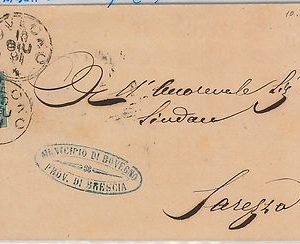 BOVEGNO
10
GIU
81
All' Onorevole Sig
Sindaco
MUNICIPIO DI BOVEGNO
PROV. DI BRESCIA
Sarezzo